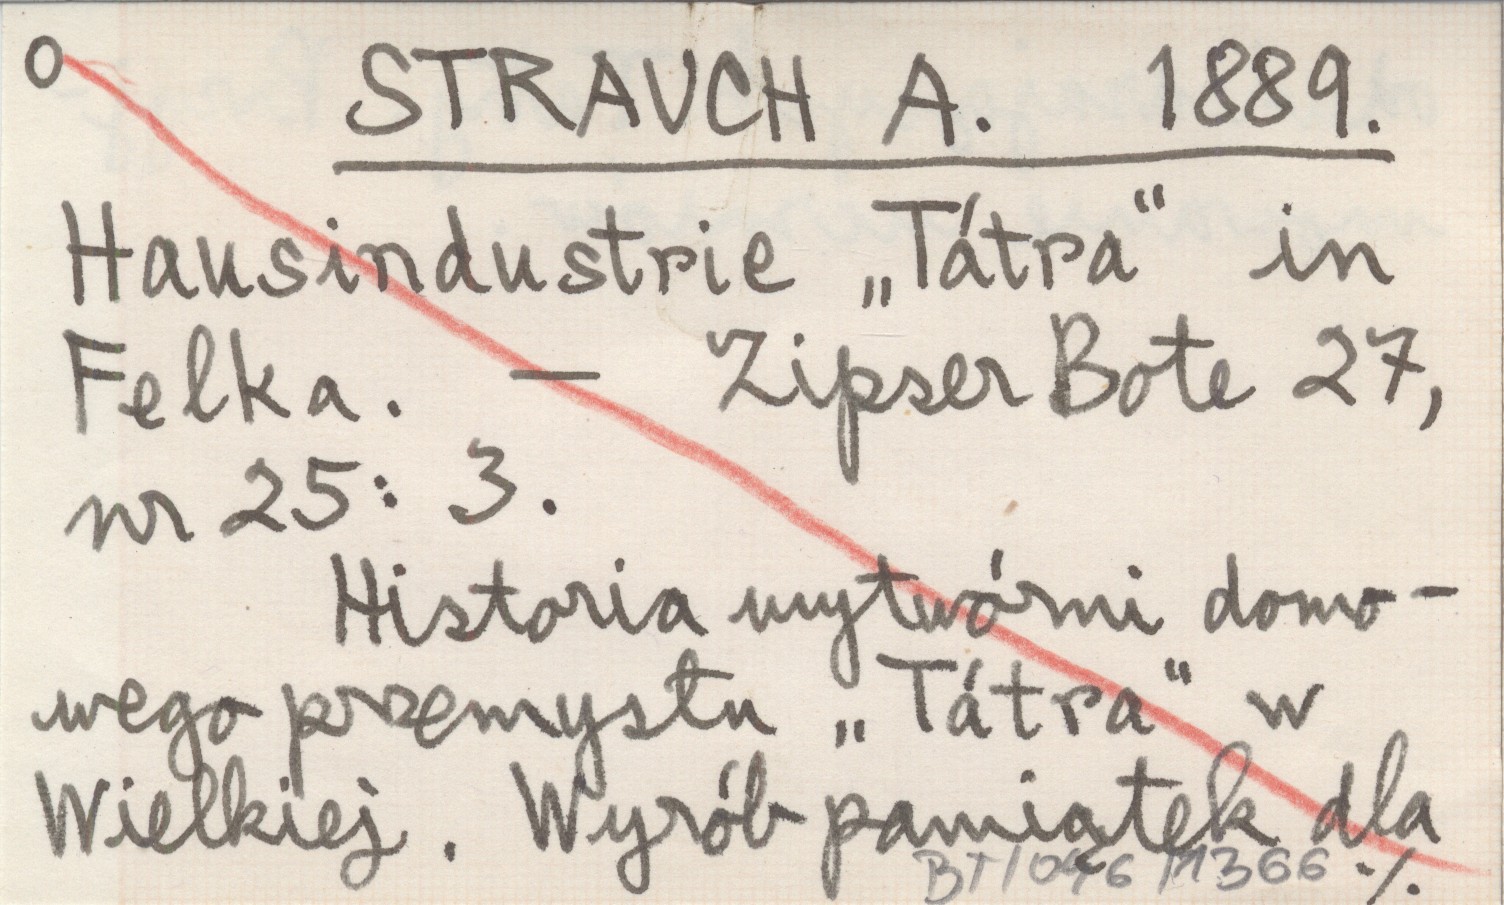 O STRAUCH A. 1889.
Hausindustrie „Tátra“ in
Felka. — Zipser Bote 27,
nr 25: 3.
Historia wytwórni domo-
wego przemysłu „Tátra“ w
Wielkiej. Wyrób pamiątek dla
BT/046/1366 ./.